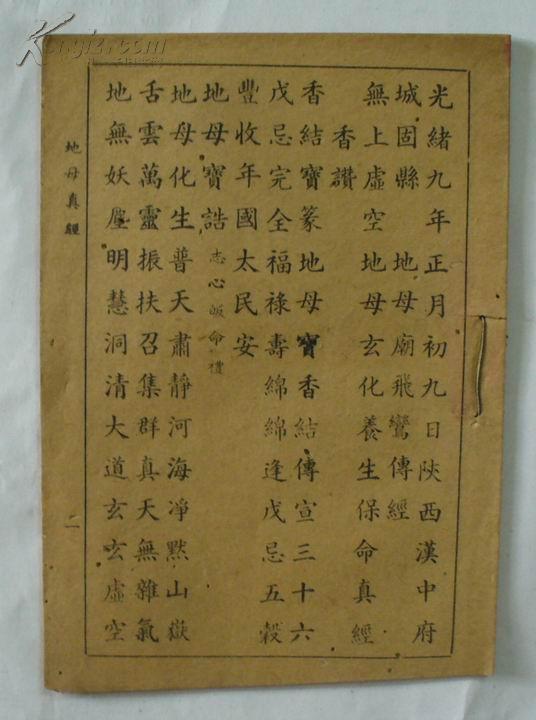 光緒九年正月初九日陝西漢中府
城固縣 地母廟飛鸞傳經
無上虛空地母玄化養生保命真經
香讚
香結寶篆地母寶香結傳宣三十六
戊忌完全福祿壽綿綿逢戊忌五穀
豐收年國太民安
地母寶誥 志心皈命禮
地母化生普天肅靜河海凈默山嶽
舌雲萬靈振扶召集群真天無雜氣
地無妖塵明慧洞清大道玄玄虛空
地母真經
一